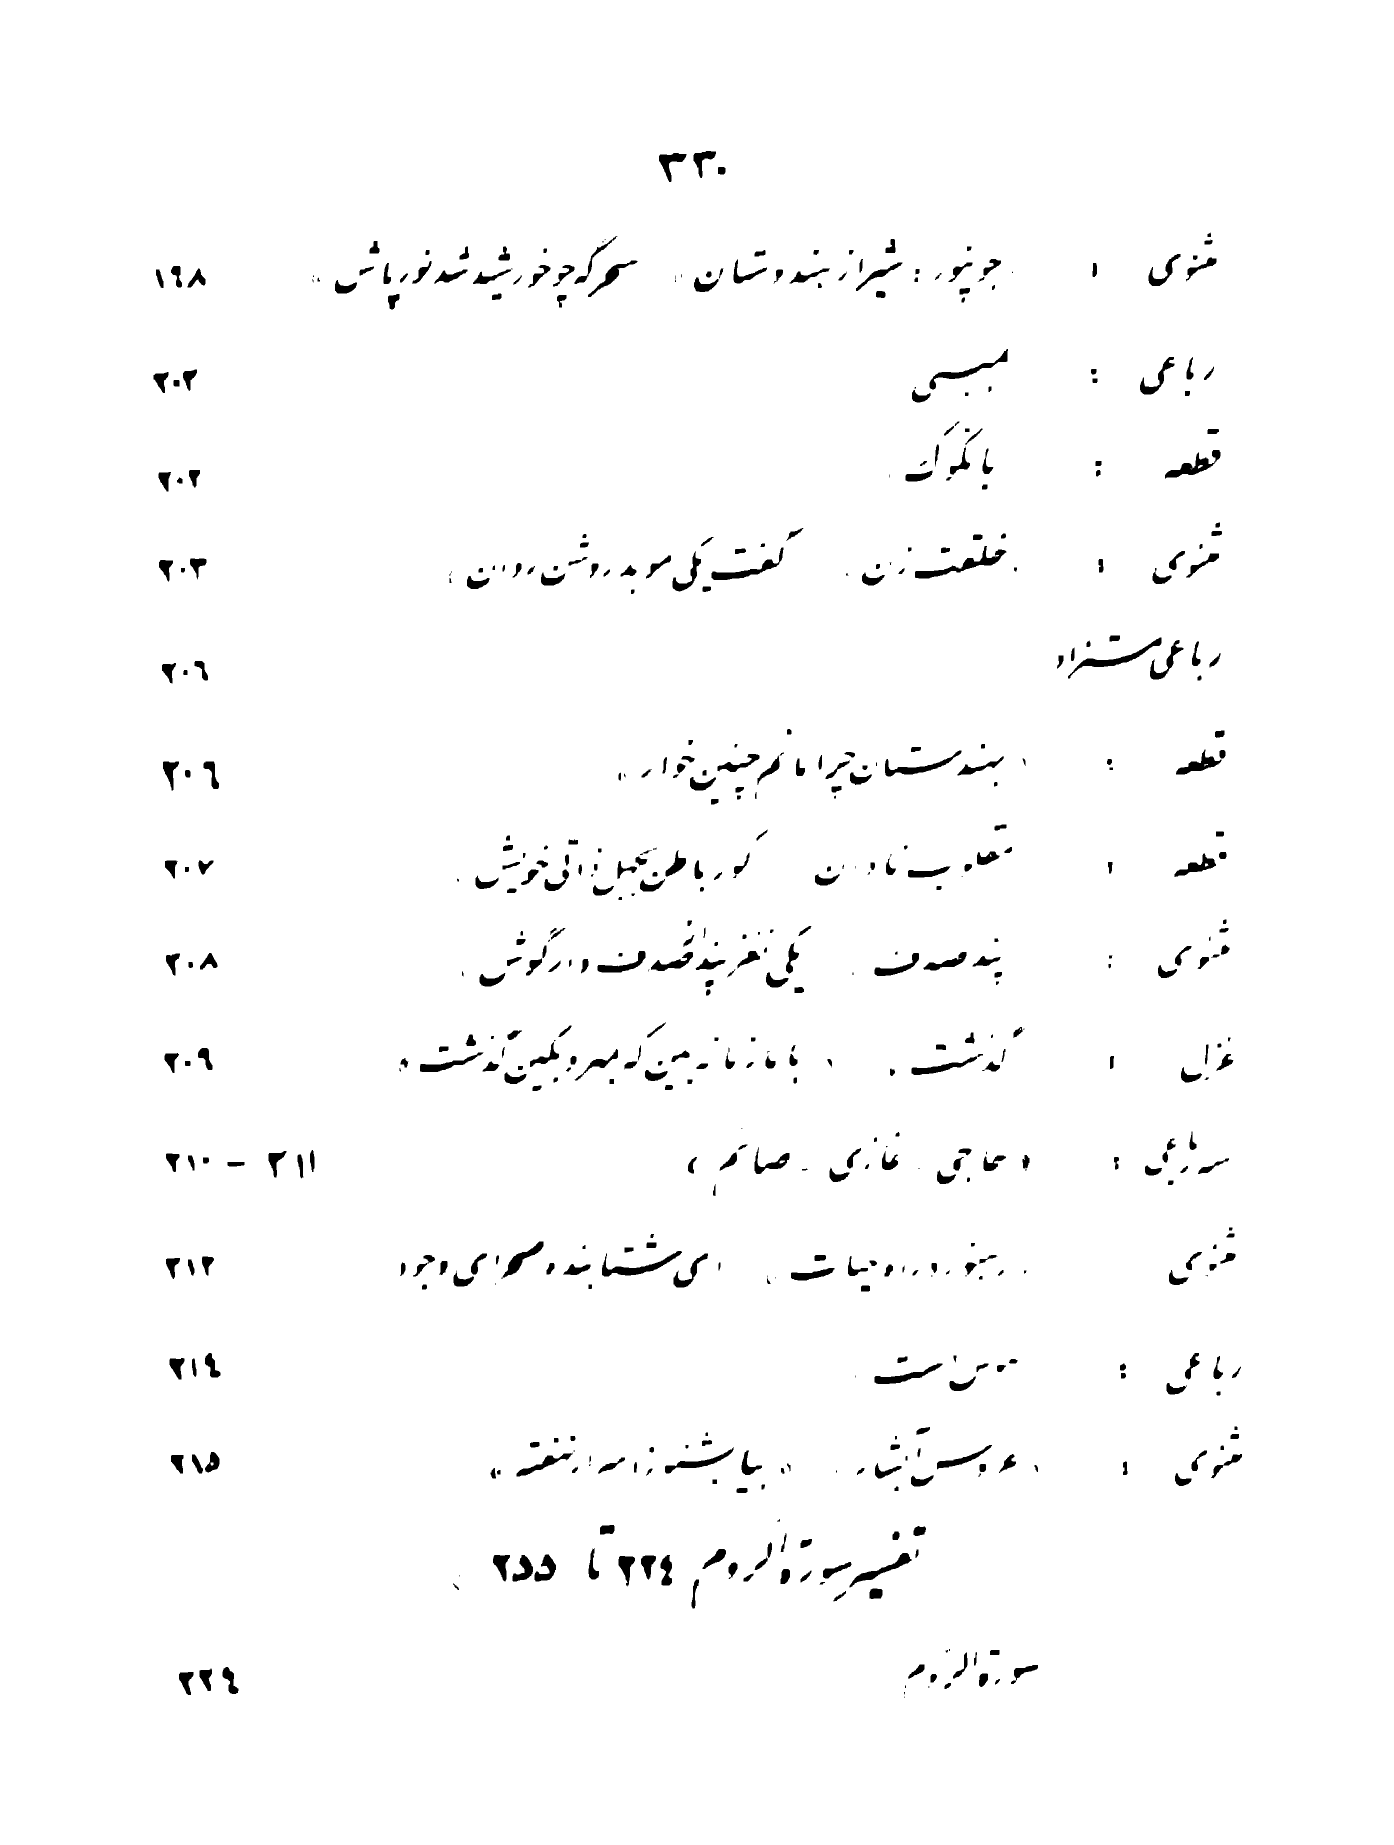 ۳۳۰
مثنوی : جونپور : شیراز ہندوستان سحرگہ چو خورشید شد نور پاش ۱۹۸
رباعی : بمبئی ۲۰۲
قطعہ : بانکوک ۲۰۲
مثنوی : خلقت زن گفت یکی موبد روشن روان ۲۰۳
رباعی مستزاد ۲۰۶
قطعہ : ہندستان چرا مانم چنین خوار ۲۰۶
قطعہ : نادان کور باطن بجہل ذاتی خویش ۲۰۷
مثنوی : پند صدف یکی نغز پند از صدف دار گوش ۲۰۸
غزل : گذشت با ما زمانہ بین کہ بمہر و بکین گذشت ۲۰۹
سہ رباعی : (حاجی - غازی - صائم) ۲۱۰ - ۲۱۱
مثنوی زنبور در راہ حیات ای شتابندہ صحرای وجود ۲۱۲
رباعی : است ۲۱۴
مثنوی : عروس آبشار بیا بشنو ز ۲۱۵
تفسیر سورۃ الروم ۲۲۴ تا ۲۵۵
سورۃ الروم ۲۲۴